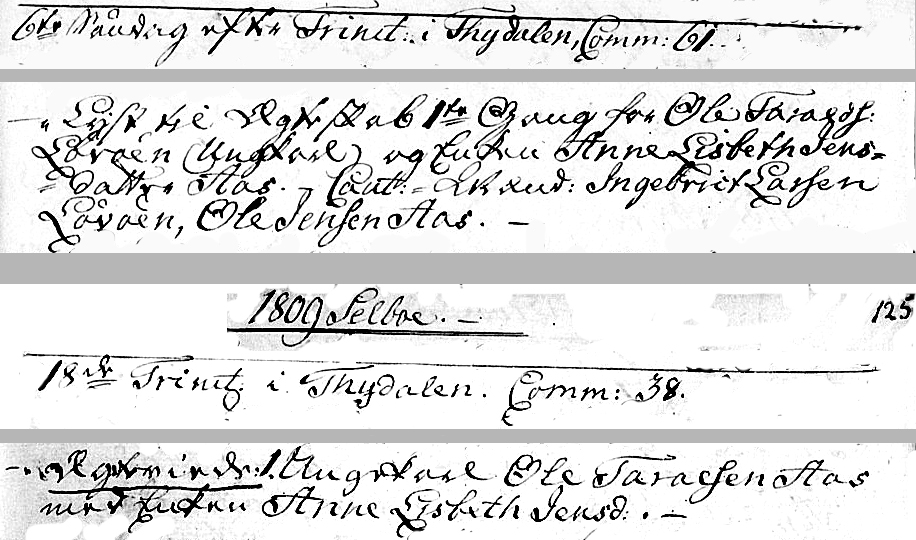 6te Søndag efter Trinit: i Thydalen, Comm: 61.
" Lyst til Ægteskab 1te Gang for Ole Taralds:
Løvøen (Ungkarl) og Enken Anne Lisbeth Jens=
=datter Aas. – Caut: = Lænd: Ingebrict Larsen
Løvøen, Ole Jensen Aas. –
1809 Selboe. –
125
18de Trinit: i Thydalen. Comm: 38.
– Ægteviede: 1. Ungekarl Ole Taraldsen Aas
med Enken Anne Lisbeth Jensd: . –